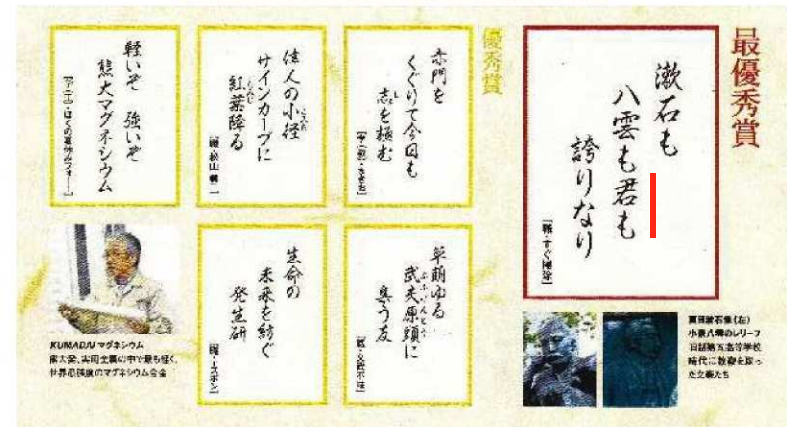 最優秀賞
漱石も
八雲も君も
誇りなり
夏目漱石像(左)
小泉八雲のレリーフ
旧制第五高等学校
時代に教鞭を取っ
た文豪たち
優秀賞
赤門を
くぐりて今日も
志を積む
草萌ゆる
武夫原頭に
集う友
偉人の小径
サインカーブに
紅葉降る
生命の
未来を紡ぐ
発生研
軽いぞ 強いぞ
熊大マグネシウム
KUMADAI マグネシウム
熊大発、実用金属の中で最も軽く、
世界最強度のマグネシウム合金